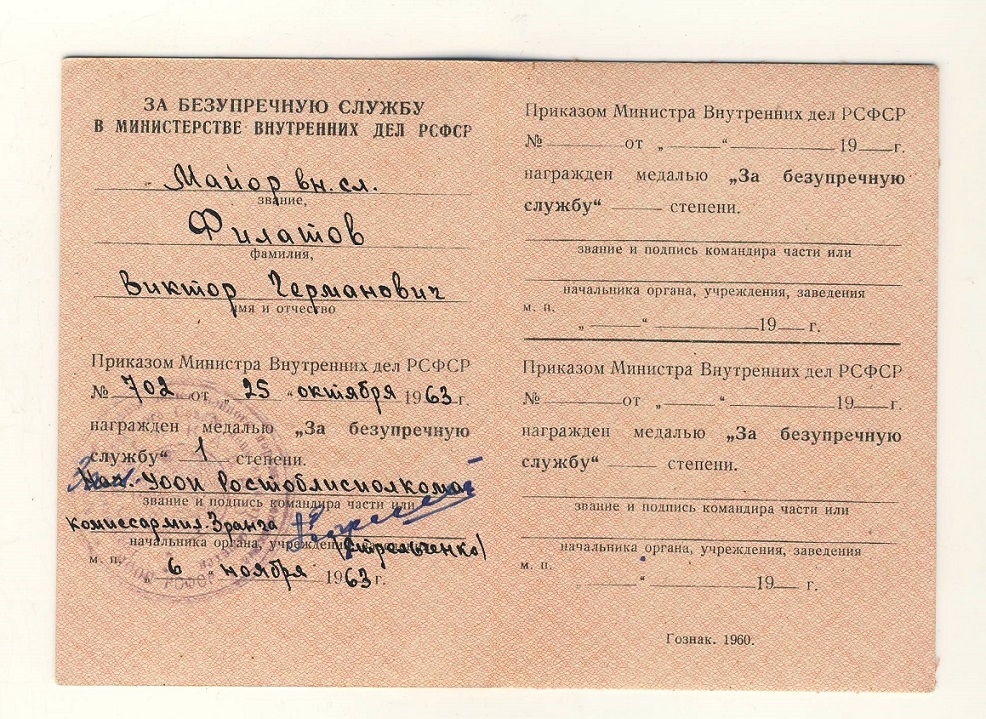 ЗА БЕЗУПРЕЧНУЮ СЛУЖБУ
В МИНИСТЕРСТВЕ ВНУТРЕННИХ ДЕЛ РСФСР
Майор вн. сл.
звание,
Филатов
фамилия,
Виктор Германович
имя и отчество
Приказом Министра Внутренних дел РСФСР
№ 702 от „ 25 “ октября 1963 г.
награжден медалью „За безупречную
службу“ 1 степени.
Нач. УООП Ростоблисполкома
звание и подпись командира части или
комиссар мил. 3 ранга
начальника органа, учреждения
(Стральченко)
м. п. „ 6 “ ноября 1963 г.
РСФСР
Приказом Министра Внутренних дел РСФСР
№ от „ “ 19 г.
награжден медалью „За безупречную
службу“ степени.
звание и подпись командира части или
начальника органа, учреждения, заведения
м. п.
„ “ 19 г.
Приказом Министра Внутренних дел РСФСР
№ от „ “ 19 г.
награжден медалью „За безупречную
службу“ степени.
звание и подпись командира части или
начальника органа, учреждения, заведения
м. п.
„ “ 19 г.
Гознак. 1960.